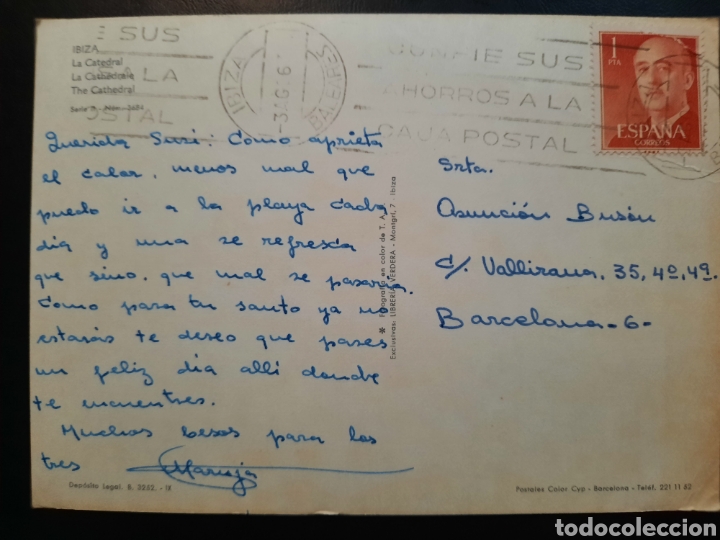 E SUS
A LA
OSTAL
IBIZA
La Catedral
La Cathédrale
The Cathedral
IBIZA
BALEARES
CONFIE SUS
AHORROS A LA
CAJA POSTAL
1
PTA
ESPAÑA
CORREOS
Querida Susi: Como aprieta
el calor, menos mal que
puedo ir a la playa cada
dia y una se refresca
que sino, que mal se pasaria.
Como para tu santo ya no
estarás te deseo que pases
un feliz dia alli donde
te encuentres.
Muchos besos para los
tres Maruja
* Fotografía en color de T. A.
Exclusivas: LIBRERIA VERDERA - Montgrí, 7 - Ibiza
Srta.
Asunción Busón
c/. Vallirana, 35, 4º, 4ª.
Barcelona-6-
Depósito Legal. B. 3252. - IX
Postales Color Cyp - Barcelona - Teléf. 221 11 62
todocoleccion